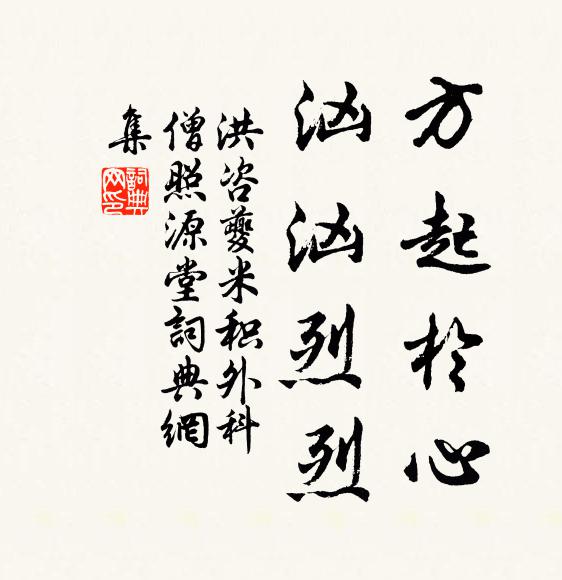 方起於心
汹汹烈烈
洪咨夔米积外科
僧照源堂詞典網
集
詞典网印